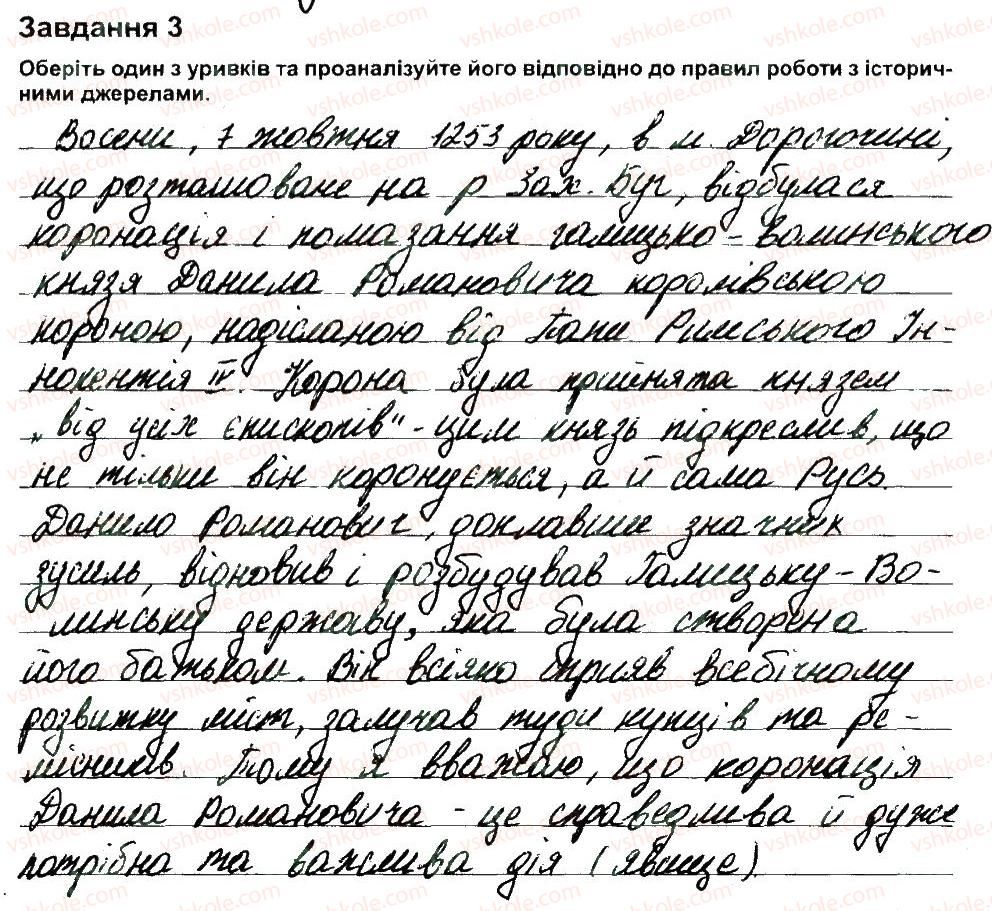 Завдання 3
Оберіть один з уривків та проаналізуйте його відповідно до правил роботи з історич-
ними джерелами.
Восени, 7 жовтня 1253 року, в м. Дорогочині,
що розташоване на р Зах. Буг, відбулася
коронація і помазання галицько-волинського
князя Данила Романовича королівською
короною, надісланою від Папи Римського Ін-
нокентія IV. Корона була прийнята князем
„від усіх єпископів" - цим князь підкреслив, що
не тільки він коронується, а й сама Русь.
Данило Романович, доклавши значних
зусиль, відновив і розбудував Галицьку-Во-
линську державу, яка була створена
його батьком. Він всіляко сприяв всебічному
розвитку міст, залучав туди купців та ре-
місників. Тому я вважаю, що коронація
Данила Романовича - це справедлива й дуже
потрібна та важлива дія (явище).